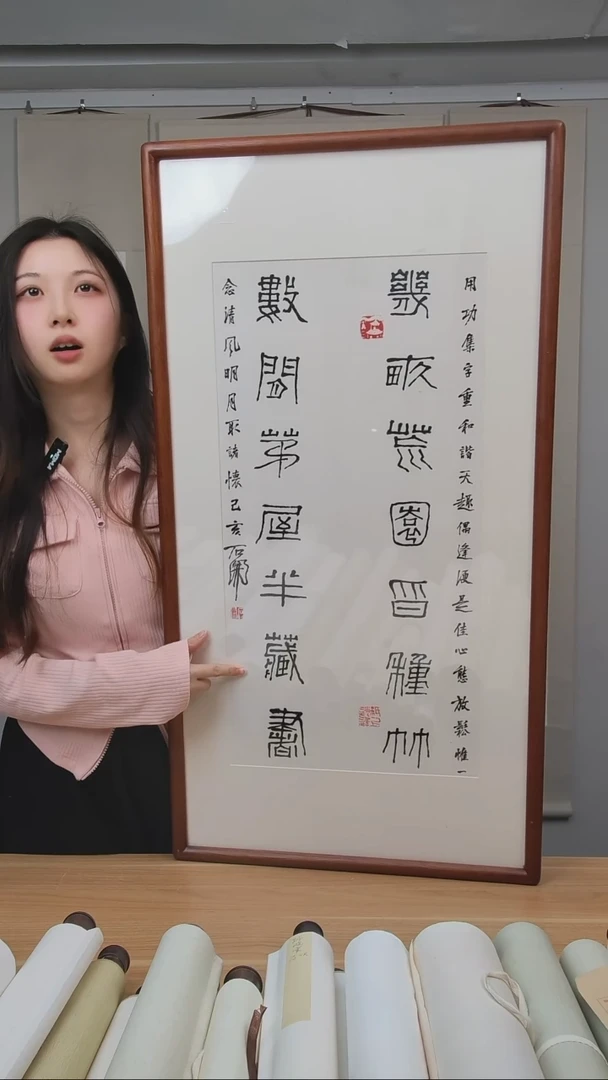 用功集字重和諧天趣偶逢便是佳心態放鬆惟一
幾畝荒園皆種竹
數間茅屋半藏書
念清風明月取諸懷己亥石